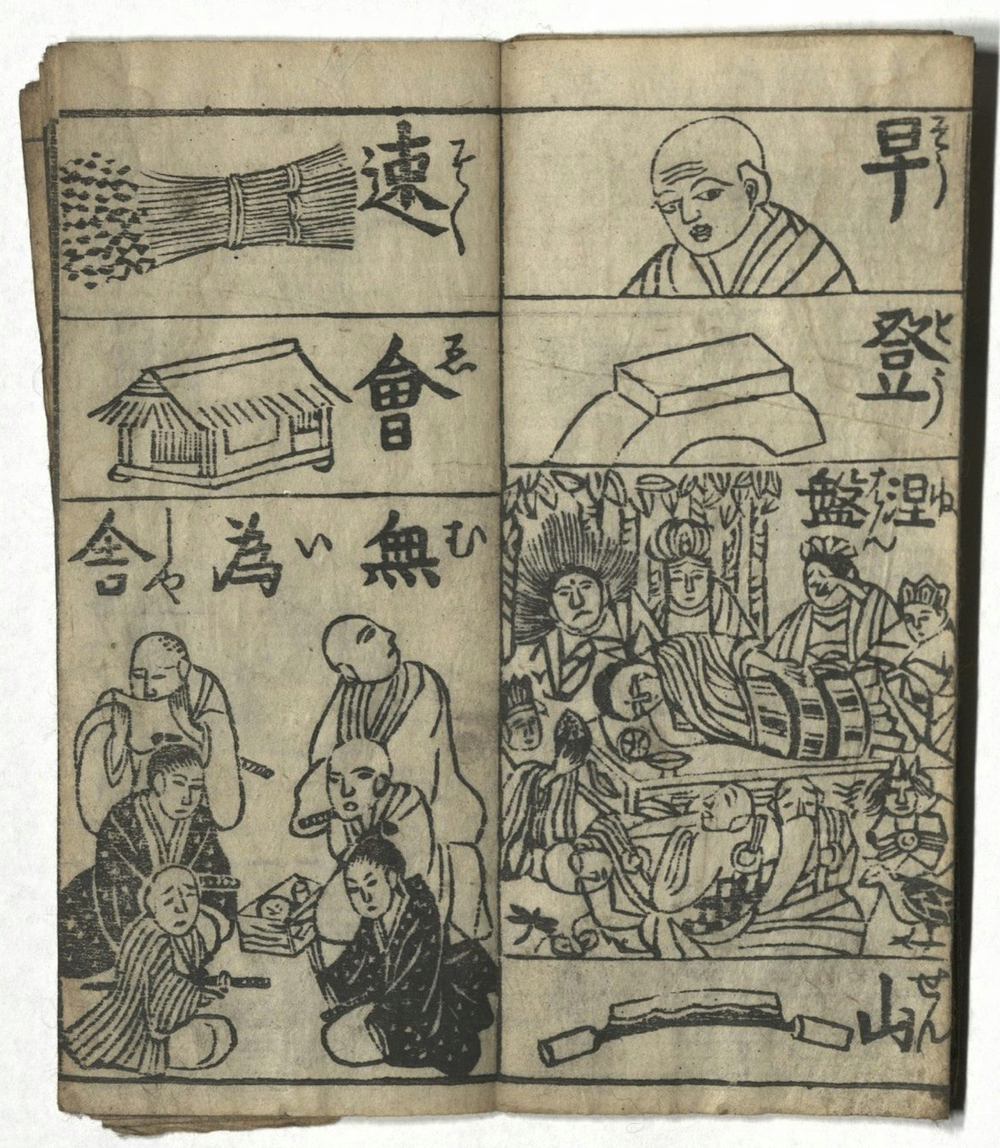 早
そう
登
とう
涅盤
ねはん
山
せん
速
そく
會
ゑ
無為舎
むいしや